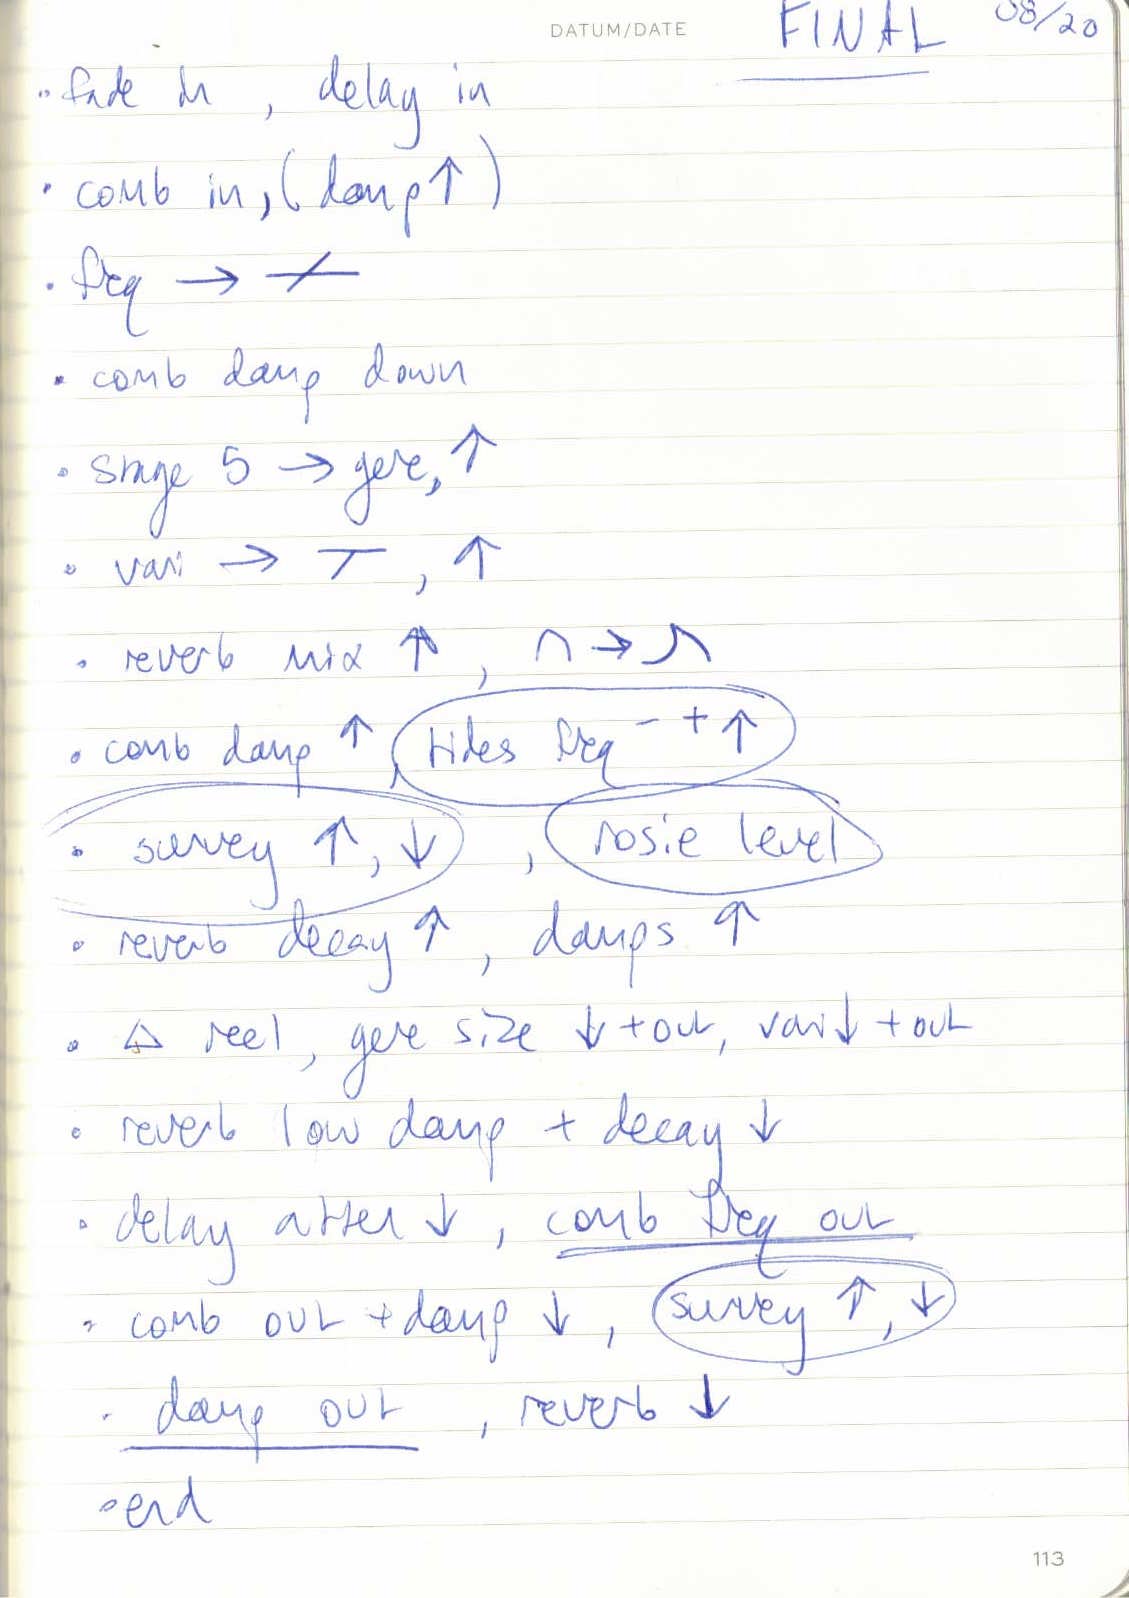 DATUM/DATE FINAL 08/20
• fade in, delay in
• comb in, (damp ↑)
• freq →
• comb damp down
• stage 5 → gene, ↑
• vari → , ↑
• reverb mix ↑, ∩ →
• comb damp ↑, tides freq - + ↑
• survey ↑, ↓, rosie level
• reverb decay ↑, damps ↑
• △ reel, gene size ↓ + out, vari ↓ + out
• reverb low damp + decay ↓
• delay atten ↓, comb freq out
• comb out + damp ↓, survey ↑, ↓
• damp out, reverb ↓
• end
113